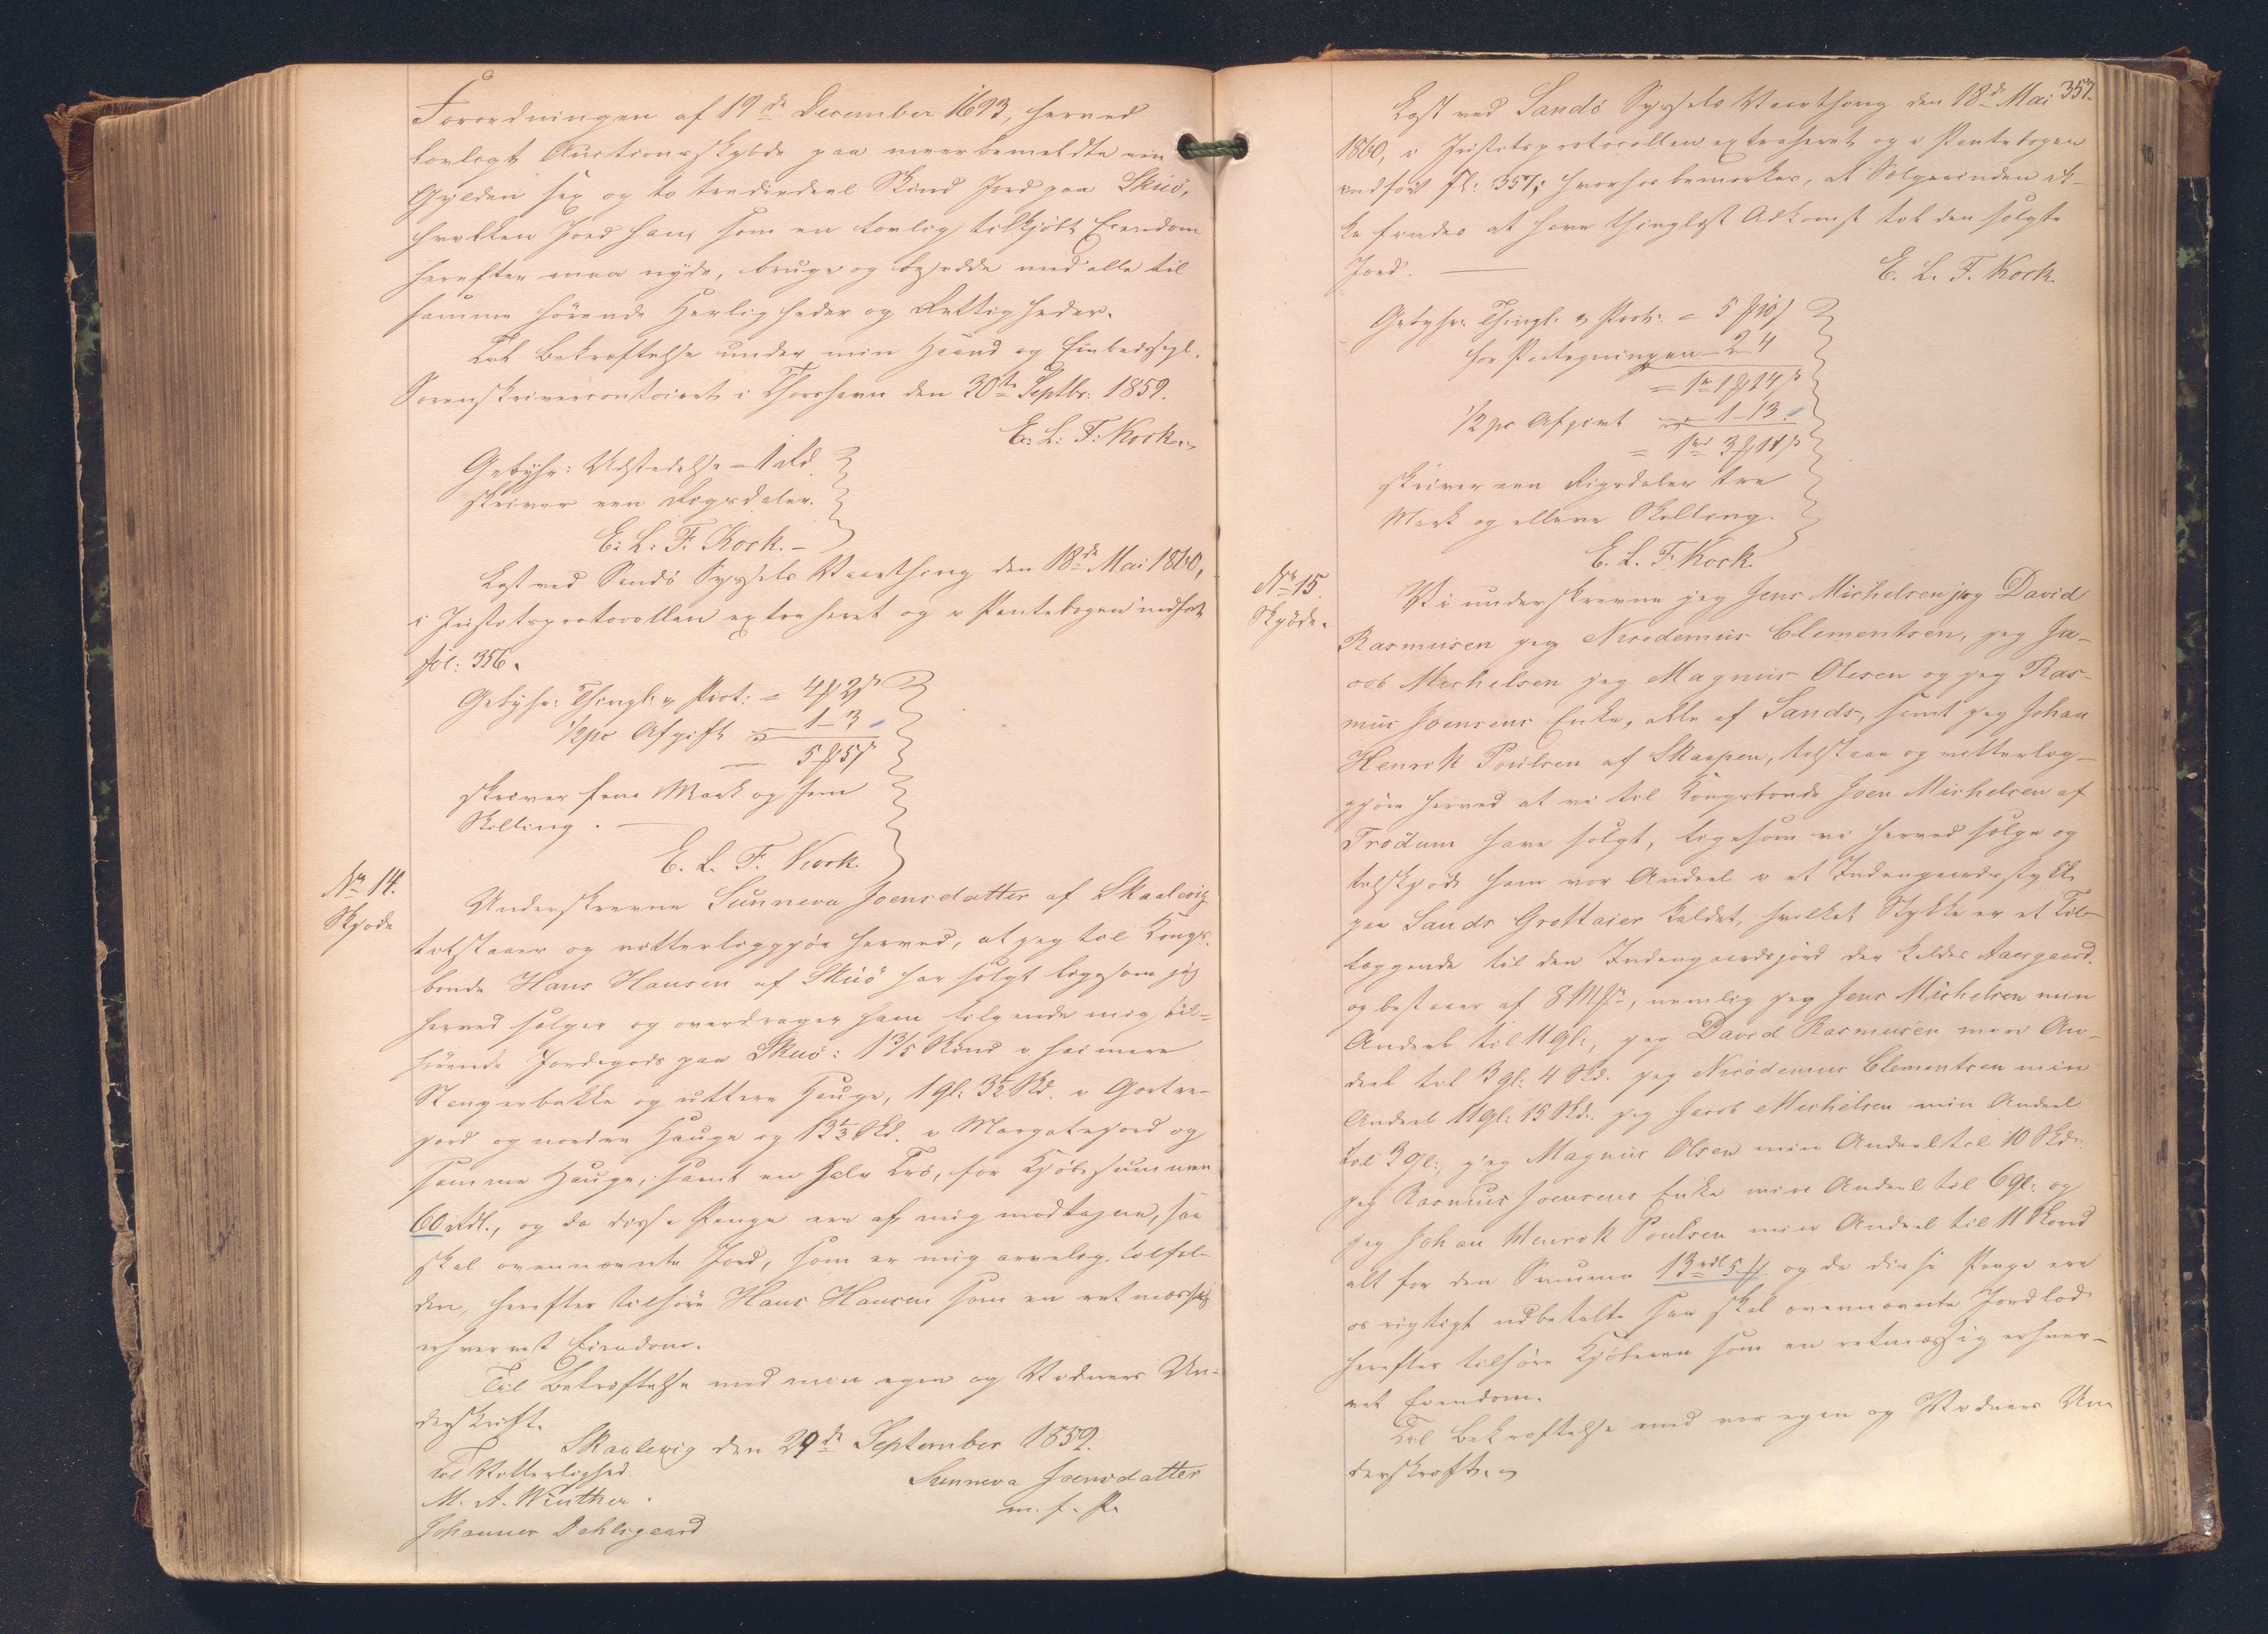 Forordningen af 19de December 1693, herved
lovligt Auctionsskjöde paa meerbemeldte een
Gylden sex og to trediedeel Skind Jord paa Skuö,
hvilken Jord han, som en lovlig tilkjöbt Eiendom
herefter maa nyde, bruge og besidde med alle til
samme hörende Herligheder og Rettigheder.
Til Bekræftelse under min Haand og Embedssegl.
Sorenskrivercontoiret i Thorshavn den 30te Septbr: 1859.
E: L: F: Kock.
Gebyhr: Udstedelse = 1 Rd.
skriver een Rigsdaler.
E: L: F: Kock.
Læst ved Sandö Syssels Vaarthing den 18de Mai 1860,
i Justitsprotocollen extraheret og i Pantebogen indfört
fol: 356.
Gebyhr: Thingl: & Prot: = 4 ℳ 2 ß
1/2 pc Afgift = 1 - 3
5 ℳ 5 ß
skriver fem Mark og fem
Skilling.
E. L. F. Kock.
No 14.
Skjöde
Underskrevne Sunneva Joensdatter af Skaalevig
tilstaaer og vitterliggjör herved, at jeg til Kongs-
bonde Hans Hansen af Skuö har solgt ligesom jeg
herved sælger og overdrager ham fölgende mig til-
hörende Jordegods paa Skuö: 1 3/5 Skind i heimere
Stengerbakke og uttere Hauge, 1 gl: 3 1/2 Skd. i Gortne-
jord og nordre Hauge og 13 1/3 Skd. i Margretejord og
samme Hauge, samt en halv Trö, for Kjöbesummen
60 Rdl., og da disse Penge ere af mig modtagne, saa
skal ovennævnte Jord, som er mig arvelig tilfal-
den, herefter tilhöre Hans Hansen som en retmæssig
erhvervet Eiendom.
Til Bekræftelse med min egen og Vidners Un-
derskrift.
Skaalevig den 29de September 1859.
Til Vitterlighed
Sunneva Joensdatter
M. A. Winther.
m. f. P.
Johannes Dahlsgaard
357.
Læst ved Sandö Syssels Vaarthing den 18de Mai
1860, i Justitsprotocollen extraheret og i Pantebogen
indfört fl: 357; hvorhos bemærkes, at Sælgerinden ik-
ke findes at have thinglæst Adkomst til den solgte
Jord.
E. L. F. Kock.
Gebyhr: Thingl: & Prot: = 5 ℳ 10 ß
for Paategningen - 2 - 4
= 1 rd 1 ℳ 14 ß
1/2 pc Afgivt = 1 - 13
= 1 rd 3 ℳ 11 ß
skriver een Rigsdaler tre
Mark og elleve Skilling.
E. L. F. Kock.
No 15.
Skjöde.
Vi underskrevne jeg Jens Michelsen jeg David
Rasmusen jeg Nicodemus Clementsen, jeg Ja-
cob Michelsen jeg Magnus Olesen og jeg Ras-
mus Joensens Enke, alle af Sands, samt jeg Johan
Henrik Poulsen af Skaapen, tilstaae og vitterlig-
gjöre herved at vi til Kongsbonde Joen Michelsen af
Trödum have solgt, ligesom vi herved sælge og
tilskjöde ham vor Andeel i et Indengaardsstykke
paa Sands Grottaier kaldet, hvilket Stykke er et Til-
læggende til den Indengaardsjord der kaldes Aasgaard.
og bestaaer af 8 Mkr, nemlig jeg Jens Michelsen min
Andeel til 11 gl:, jeg David Rasmusen min An-
deel til 3 gl: 4 Skd. jeg Nicodemus Clementsen min
Andeel 11 gl: 15 Skd: jeg Jacob Michelsen min Andeel
til 3 gl:, jeg Magnus Olsen min Andeel til 10 Skd:
jeg Rasmus Joensens Enke min Andeel til 6 gl: og
jeg Johan Henrik Poulsen min Andeel til 11 Skind
alt for den Summa 13 rdl 5 ℳ. og da disse Penge ere
os rigtigt udbetalte saa skal ovennævnte Jordlod
herefter tilhöre Kjöberen som en retmæssig erhver-
vet Eiendom.
Til Bekræftelse med vor egen og Vidners Un-
derskrift.